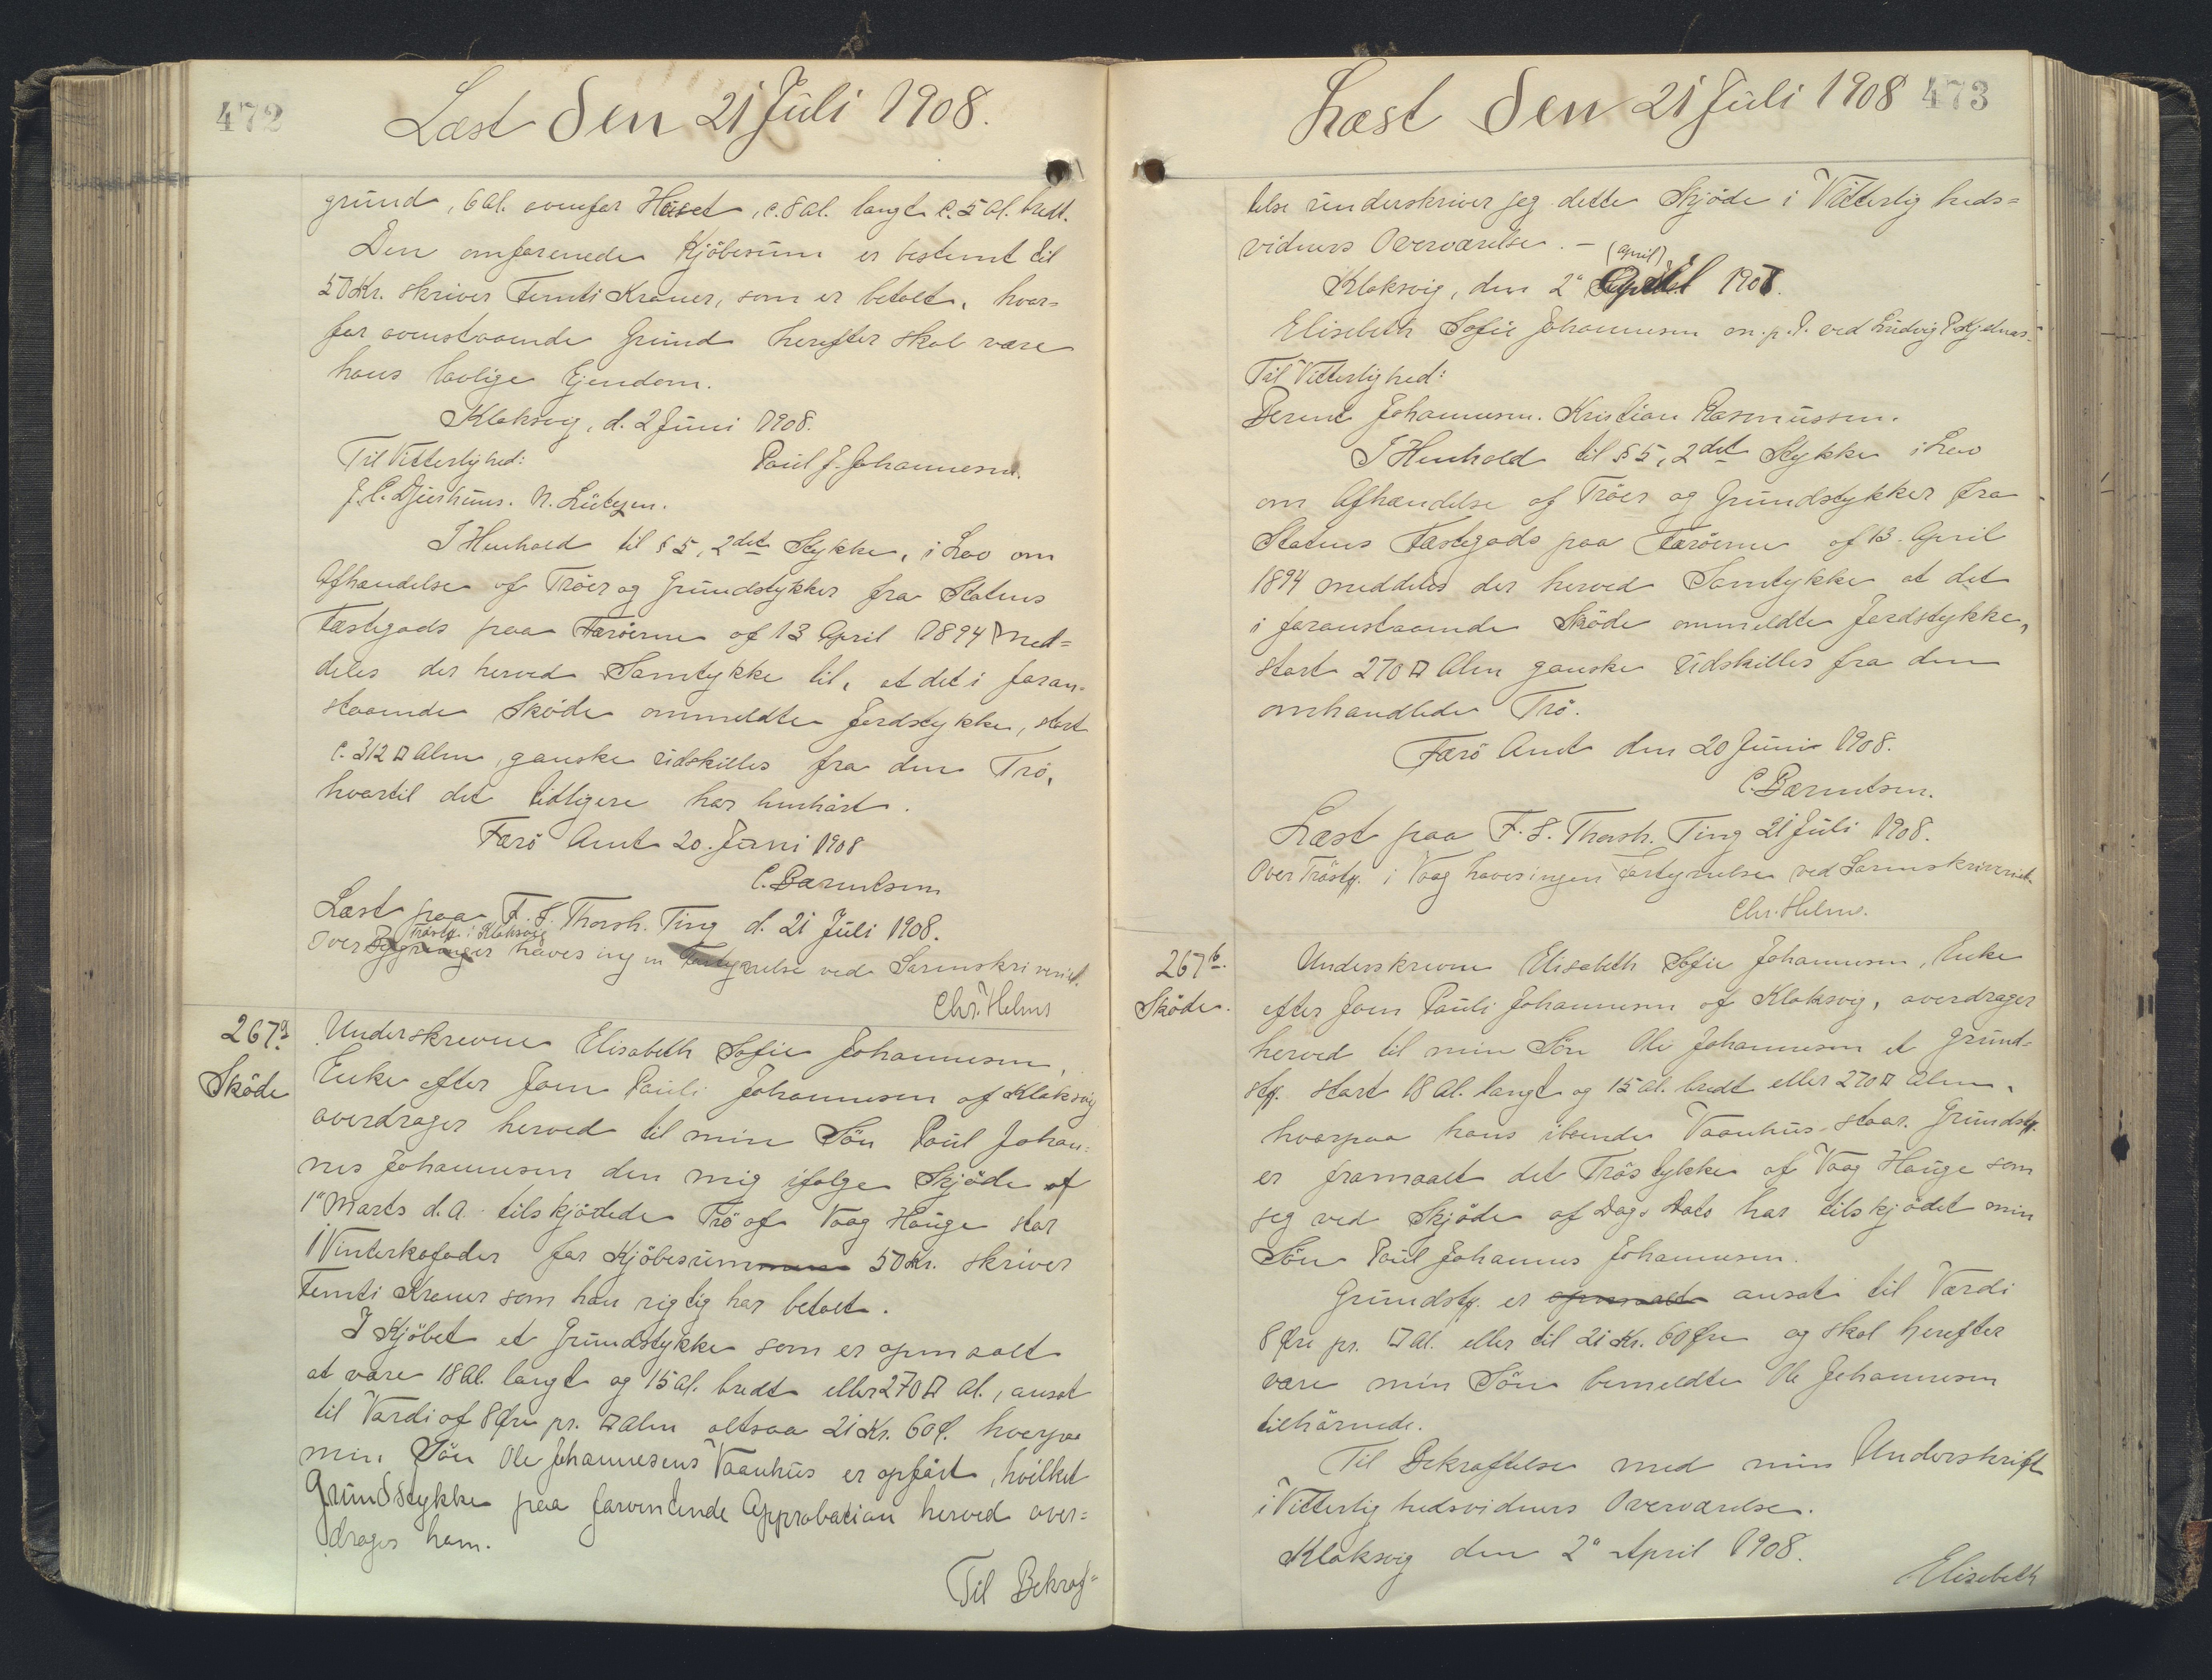 472
Læst den 21 Juli 1908.
grund, 6 Al. ovenfor Huset, c. 8 Al. langt c. 5 Al. bredt.
Den omforenede Kjöbesum er bestemt til
50 Kr. skriver Femti Kroner, som er betalt, hvor=
for ovenstaaende Grund herefter skal være
hans lovlige Ejendom.
Klaksvig, d. 2 Juni 1908.
Til Vitterlighed: Poul J. Johannesen.
J. C. Djurhuus. N. Lützen.
I Henhold til § 5, 2det Stykke, i Lov om
Afhændelse af Tröer og Grundstykker fra Statens
Fæstegods paa Færöerne af 13 April 1894 med=
deles der herved Samtykke til, at det i foran=
staaende Sköde ommeldte Jordstykke, stort
c. 312 □ Alen, ganske udskilles fra den Trö,
hvortil det tidligere har henhört.
Færö Amt 20. Juni 1908
C. Bærentsen
Læst paa F. S. Thorsh. Ting d. 21 Juli 1908.
Tröstk. i Klaksvig
Over Bygninger haves ingen Fortegnelse ved Sorenskriveriet.
Chr. Helms
267a.
Sköde
Underskrevne Elisabeth Sofie Johannesen,
Enke efter Joen Pauli Johannesen af Klaksvig
overdrager herved til min Sön Poul Johan=
nes Johannesen den mig ifölge Skjöde af
1" Marts d. A. tilskjödede Trö af Vaag Hauge stor
1 Vinterkofoder for Kjöbesummen 50 Kr. skriver
Femti Kroner som han rigtig har betalt.
I Kjöbet et Grundstykke som er opmaalt
at være 18 Al. langt og 15 Al. bredt eller 270 □ Al., ansat
til Værdi af 8 Öre pr. □ Alen altsaa 21 Kr. 60 Ö. hvorpaa
min Sön Ole Johannesens Vaanhus er opfört, hvilket
Grundstykke paa forventende Approbation herved over=
drages ham.
Til Bekræf=
473
Læst den 21 Juli 1908
telse underskriver jeg dette Skjöde i Vitterligheds=
vidners Overværelse. —
(April)
Klaksvig, den 2" April 1908.
Elisabeth Sofie Johannesen m. p. P. ved Ludvig P. Kjølnæs.
Til Vitterlighed:
Berint Johannesen. Kristian Rasmussen.
I Henhold til § 5, 2det Stykke i Lov
om Afhændelse af Tröer og Grundstykker fra
Statens Fæstegods paa Færöerne af 13. April
1894 meddeles der herved Samtykke at det
i foranstaaende Sköde ommeldte Jordstykke,
stort 270 □ Alen ganske udskilles fra den
omhandlede Trö.
Færö Amt den 20 Juni 1908.
C. Bærentsen.
Læst paa F. S. Thorsh. Ting 21 Juli 1908.
Over Tröstk. i Vaag haves ingen Fortegnelse ved Sorenskriveriet
Chr. Helms.
267b.
Sköde.
Underskrevne Elisabeth Sofie Johannesen, Enke
efter Joen Pauli Johannesen af Klaksvig, overdrager
herved til min Sön Ole Johannesen et Grund=
stk. stort 18 Al. langt og 15 Al. bredt eller 270 □ Alen,
hvorpaa hans iboende Vaanhus staar. Grundstk.
er framaalt det Tröstykke af Vaag Hauge som
jeg ved Skjöde af Dags Dato har tilskjödet min
Sön Poul Johannes Johannesen.
Grundstk. er opmaalt ansat til Værdi
8 Öre pr. □ Al. eller til 21 Kr. 60 Öre og skal herefter
være min Sön bemeldte Ole Johannesen
tilhörende.
Til Bekræftelse med min Underskrift
i Vitterlighedsvidners Overværelse.
Klaksvig den 2" April 1908.
Elisabeth